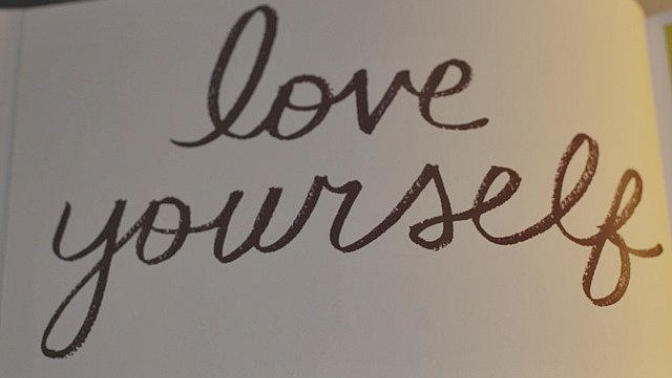 love
yourself